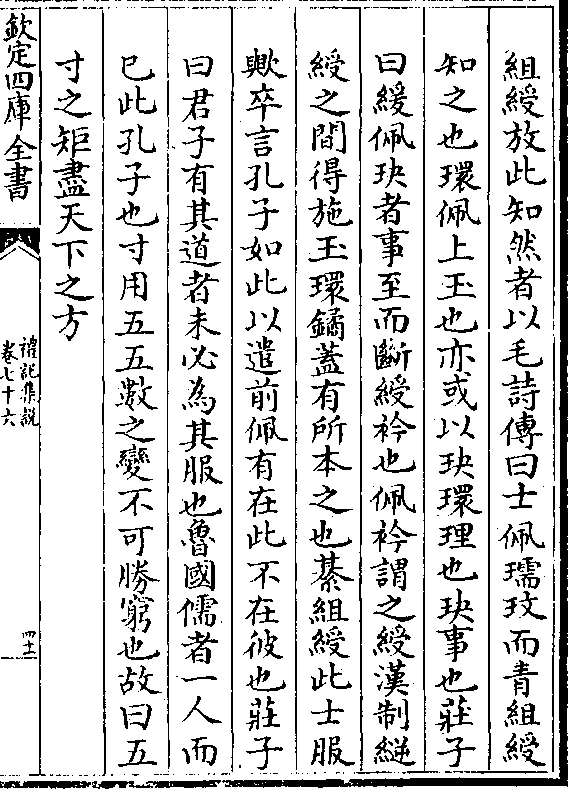 組綬放此知然者以毛詩傳曰士佩瓀玟而青組綬
知之也環佩上玉也亦或以玦環理也玦事也莊子
曰緩佩玦者事至而斷綬衿也佩衿謂之綬漢制縌
綬之間得施玉環鐍蓋有所本之也綦組綬此士服
歟卒言孔子如此以遣前佩有在此不在彼也莊子
曰君子有其道者未必為其服也魯國儒者一人而
已此孔子也寸用五五數之變不可勝窮也故曰五
寸之矩盡天下之方
欽定四庫全書
禮記集說
卷七十六